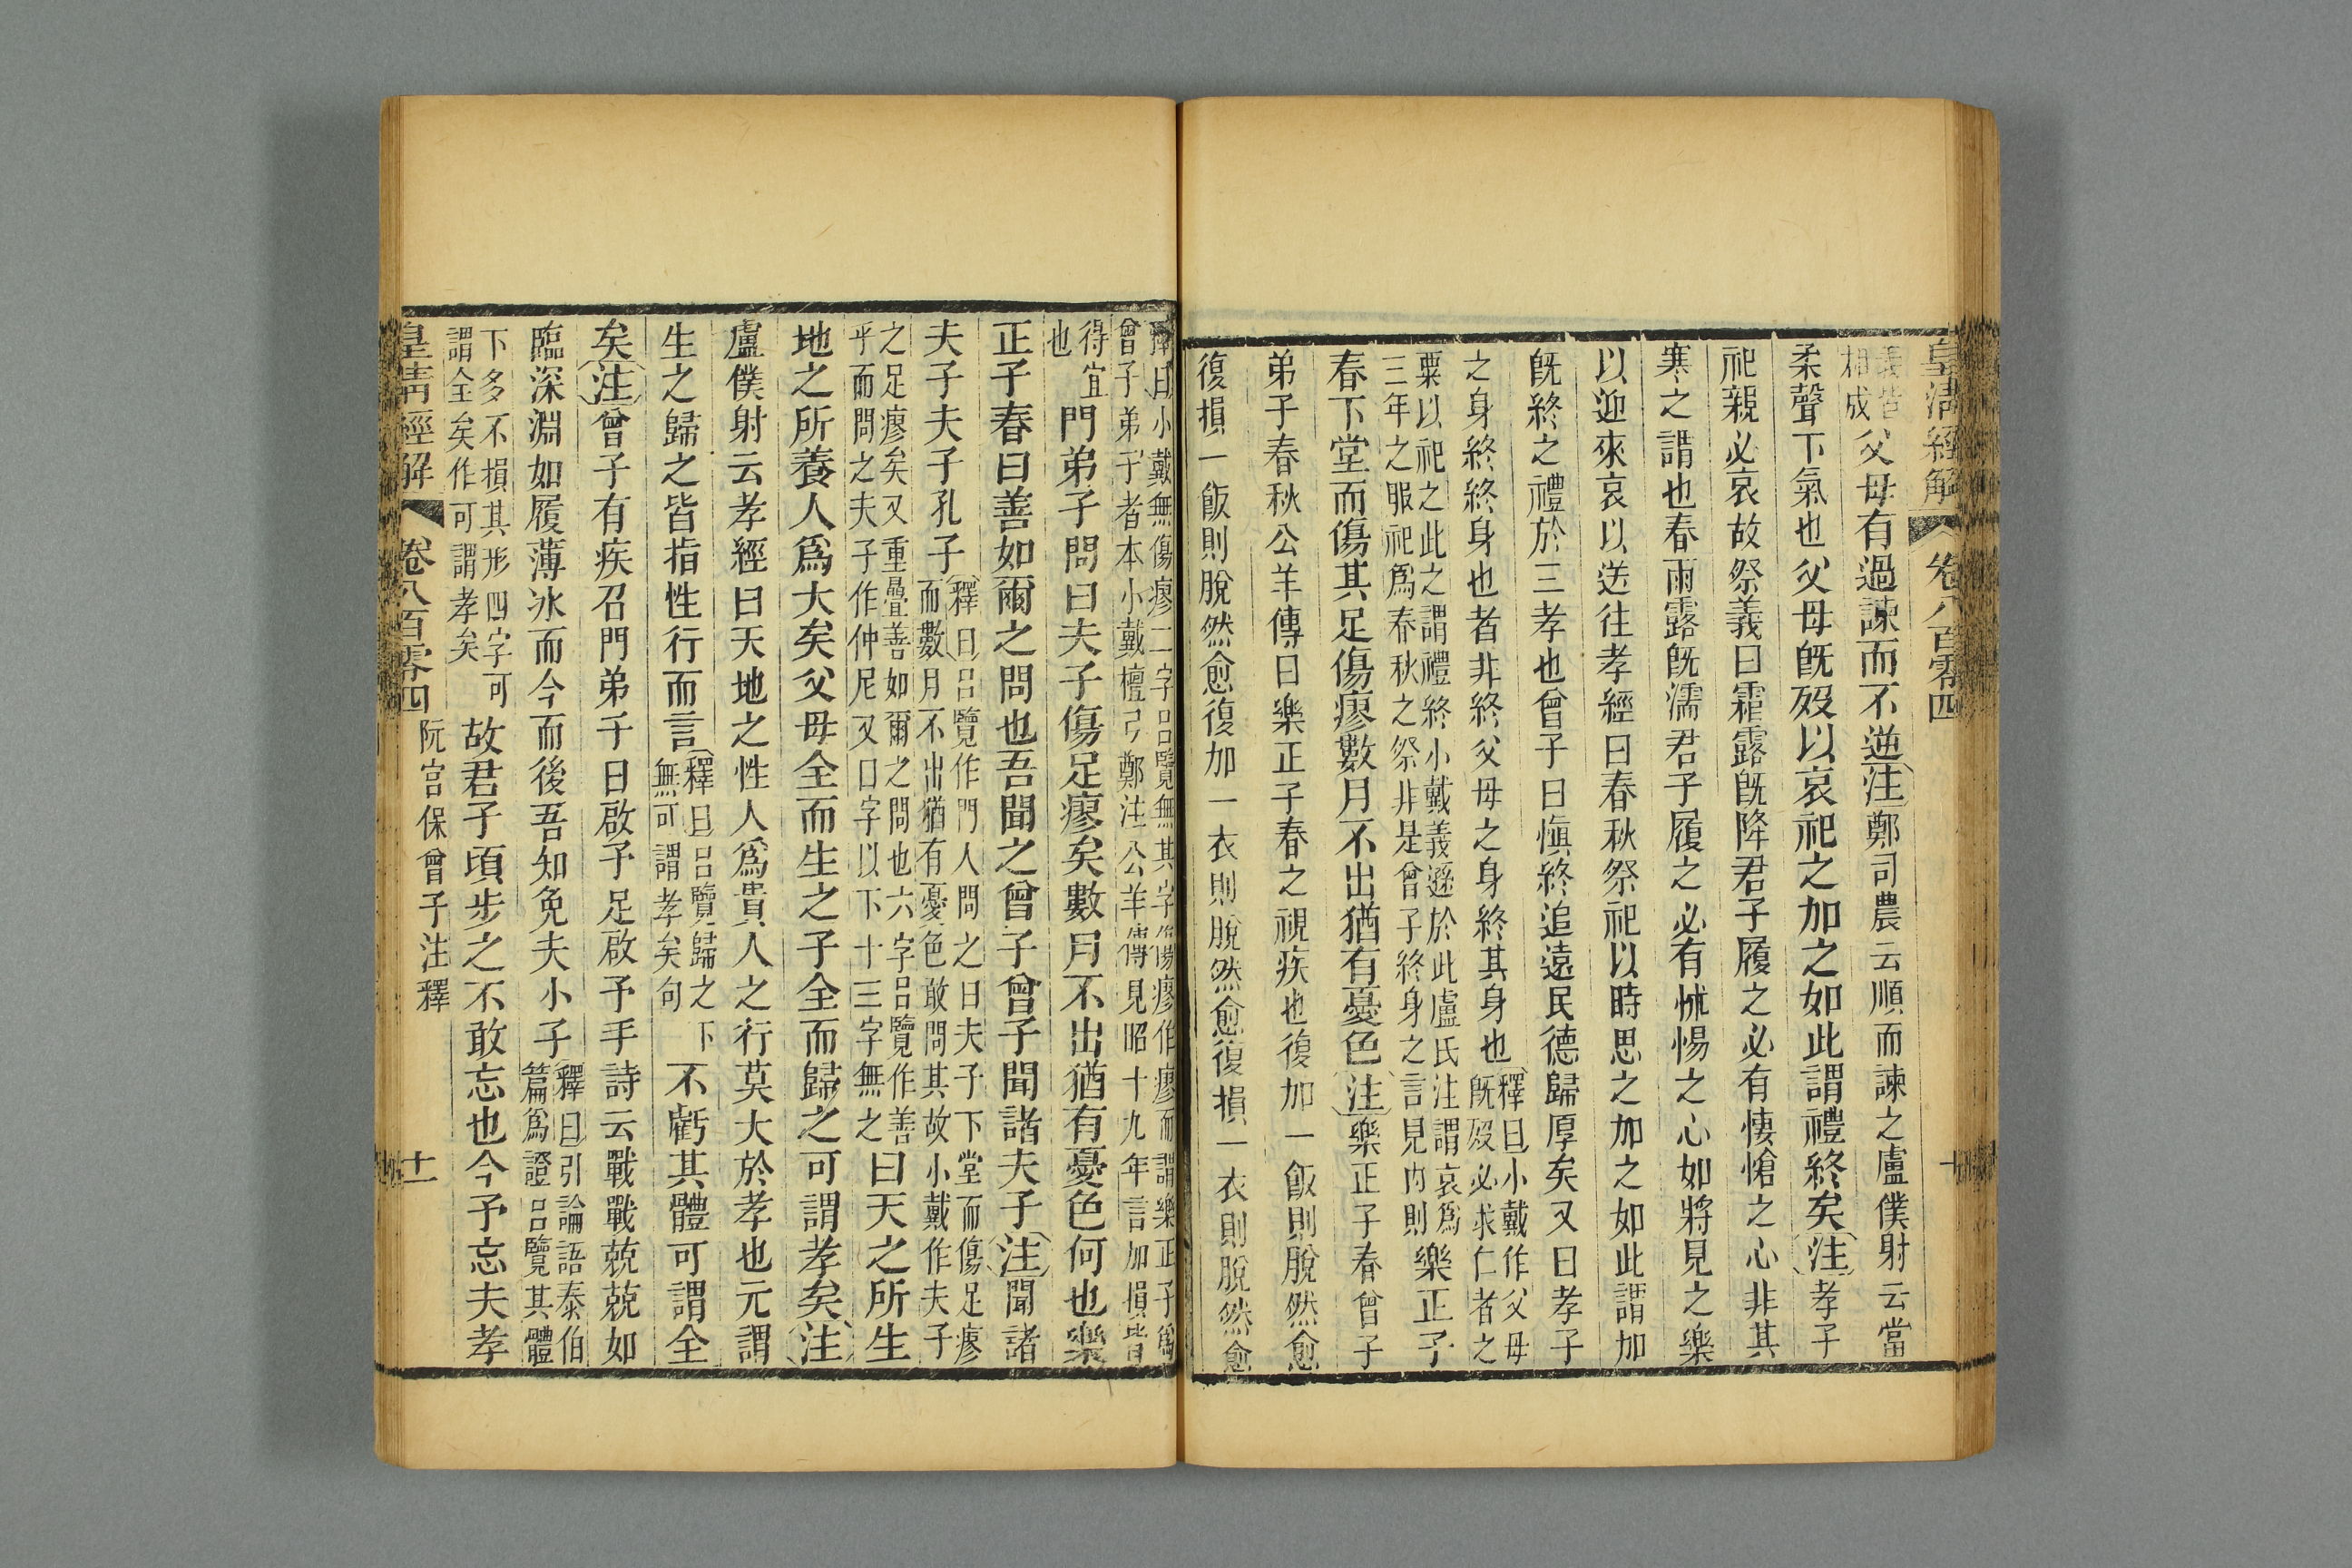 皇清經解 卷八百零四 十
義皆相成父母有過諫而不逆注鄭司農云順而諫之盧僕射云當
柔聲下氣也父母既歿以哀祀之加之如此謂禮終矣注孝子
祀親必哀故祭義曰霜露既降君子履之必有悽愴之心非其
寒之謂也春雨露既濡君子履之必有怵惕之心如將見之樂
以迎來哀以送往孝經曰春秋祭祀以時思之加之如此謂加
既終之禮於三孝也曾子曰慎終追遠民德歸厚矣又曰孝子
之身終終身也者非終父母之身終其身也釋曰小戴作父母既歿必求仁者之
粟以祀之此之謂禮終小戴義遜於此盧氏注謂哀爲三年之服祀爲春秋之祭非是曾子終身之言見內則樂正子
春下堂而傷其足傷瘳數月不出猶有憂色注樂正子春曾子
弟子春秋公羊傳曰樂正子春之視疾也復加一飯則脫然愈
復損一飯則脫然愈復加一衣則脫然愈復損一衣則脫然愈
釋曰小戴無傷瘳二字呂覽無其字傷瘳作瘳而謂樂正子爲曾子弟子者本小戴檀弓鄭注公羊傳見昭十九年言加損皆
得宜也門弟子問曰夫子傷足瘳矣數月不出猶有憂色何也樂
正子春曰善如爾之問也吾聞之曾子曾子聞諸夫子注聞諸
夫子夫子孔子釋曰呂覽作門人問之曰夫子下堂而傷足瘳而數月不出猶有憂色敢問其故小戴作夫子
之足瘳矣又重疊善如爾之問也六字呂覽作善乎而問之夫子作仲尼又曰字以下十三字無之曰天之所生
地之所養人爲大矣父母全而生之子全而歸之可謂孝矣注
盧僕射云孝經曰天地之性人爲貴人之行莫大於孝也元謂
生之歸之皆指性行而言釋曰呂覽歸之下無可謂孝矣句不虧其體可謂全
矣注曾子有疾召門弟子曰啟予足啟予手詩云戰戰兢兢如
臨深淵如履薄冰而今而後吾知免夫小子釋曰引論語泰伯篇爲證呂覽其體
下多不損其形四字可謂全矣作可謂孝矣故君子頃步之不敢忘也今予忘夫孝
皇清經解 卷八百零四 阮宮保曾子注釋 十一